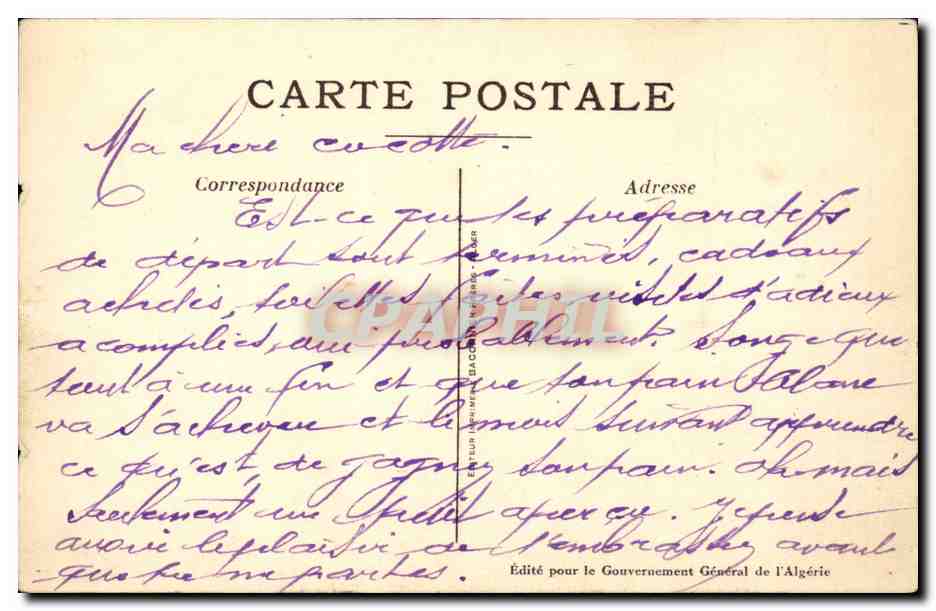 CARTE POSTALE
Ma chère cocotte.
Correspondance
Adresse
Est-ce que les préparatifs
de départ sont terminés, cadeaux
achetés, toilettes faites, visites d'adieux
acomplies, oui probablement. Songe que
tout à une fin et que ton pain
va s'achever et le mois suivant apprendre
ce qu'est de gagner ton pain. Oh mais
seulement un petit aperçu. Je pense
avoir le plaisir de t'embrasser avant
que tu ne partes.
Edité pour le Gouvernement Général de l'Algérie
EDITEUR IMPRIMERIE BACONNIER FRÈRES - ALGER
CPAPHIL